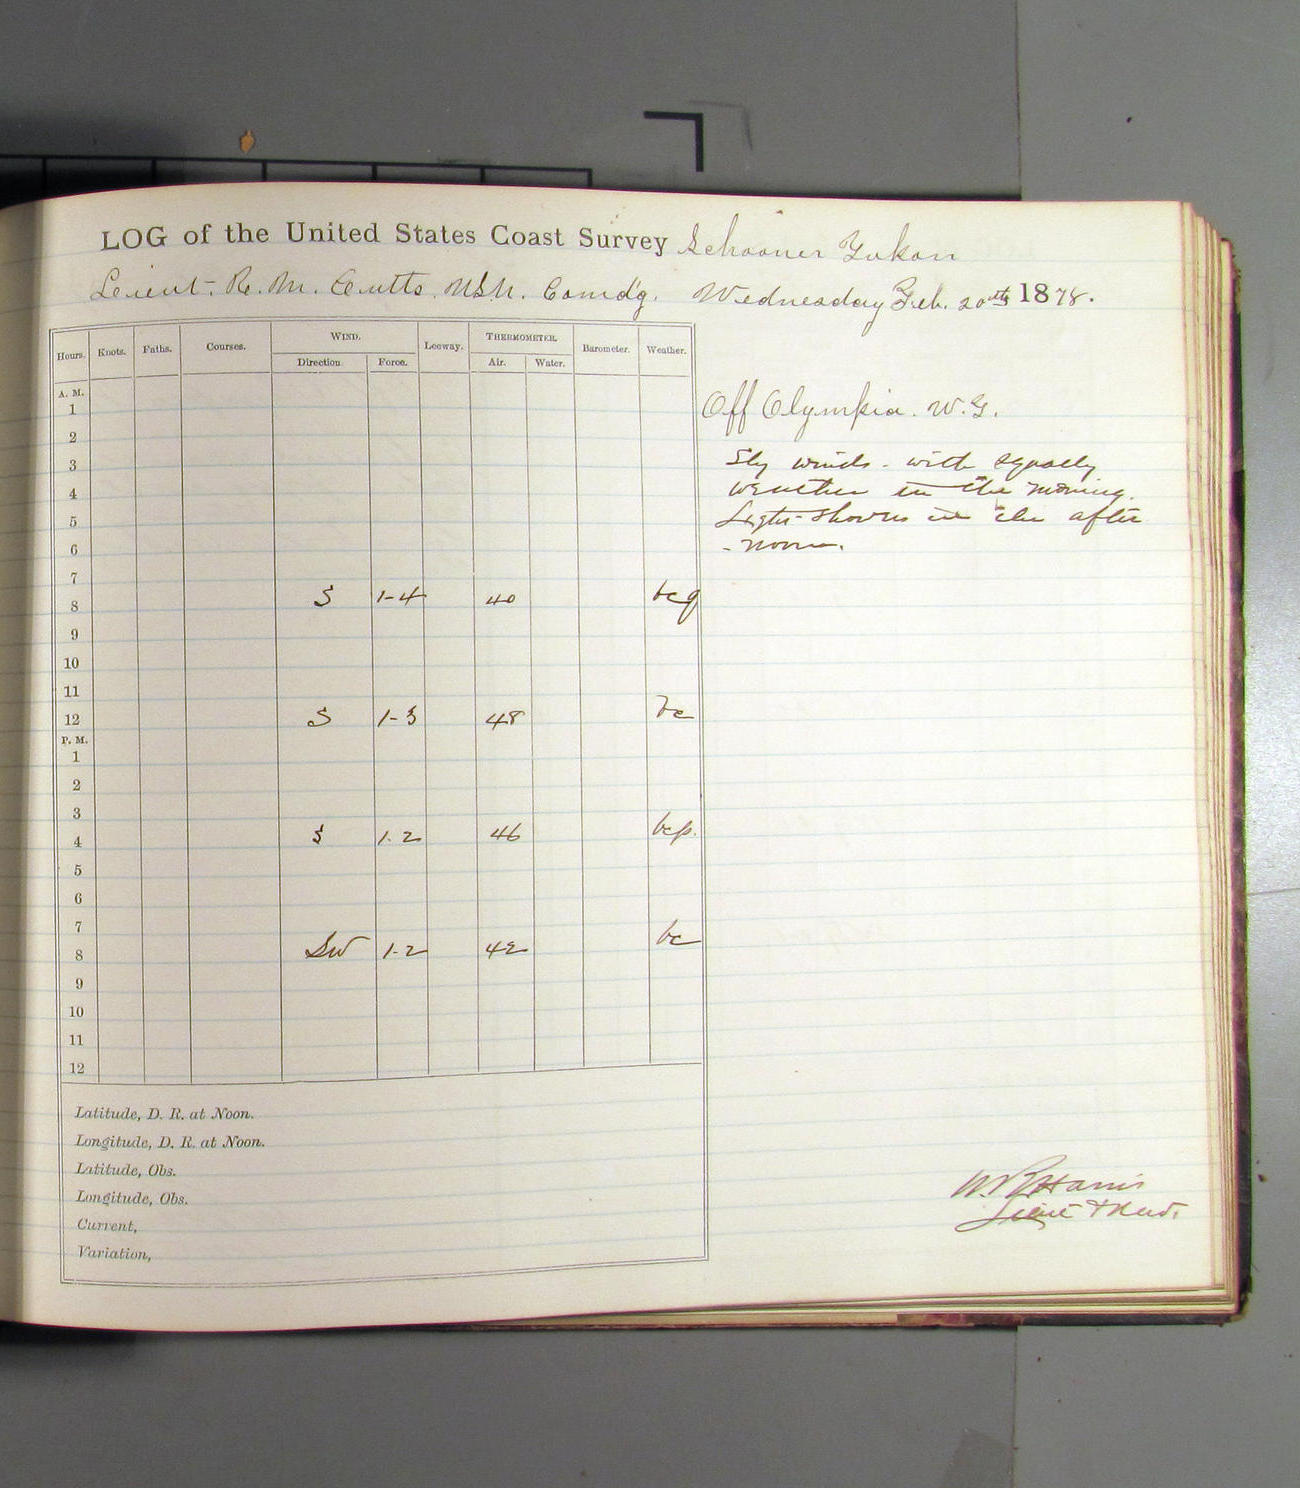 LOG of the United States Coast Survey Schooner Yukon
Lieut. R. M. Cutts. U.S.N. Comd'g. Wednesday Feb. 20th 1878.
Hours. Knots. Faths. Courses. WIND. Leeway. THERMOMETER. Barometer. Weather.
Direction. Force. Air. Water.
A. M.
1
Off Olympia. W.T.
2
3
Sly winds - with squally
4
weather in the morning.
5
Light showers in the after
6
- noon.
7
8 S 1-4 40 bcq
9
10
11
12 S 1-3 48 bc
P. M.
1
2
3
4 S 1-2 46 bcp.
5
6
7
8 SW 1-2 42 bc
9
10
11
12
Latitude, D. R. at Noon.
Longitude, D. R. at Noon.
Latitude, Obs.
Longitude, Obs.
Current,
Variation,
Harris
Lieut